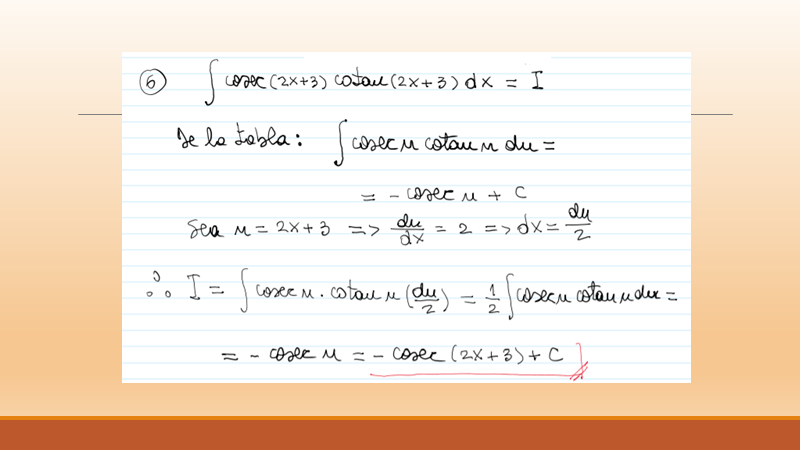 6 ∫ cosec(2x+3) cotan(2x+3) dx = I
De la tabla: ∫ cosec u cotan u du =
= - cosec u + C
Sea u = 2x+3 => du/dx = 2 => dx = du/2
∴ I = ∫ cosec u . cotan u (du/2) = 1/2 ∫ cosec u cotan u du =
= - cosec u = - cosec (2x+3) + C